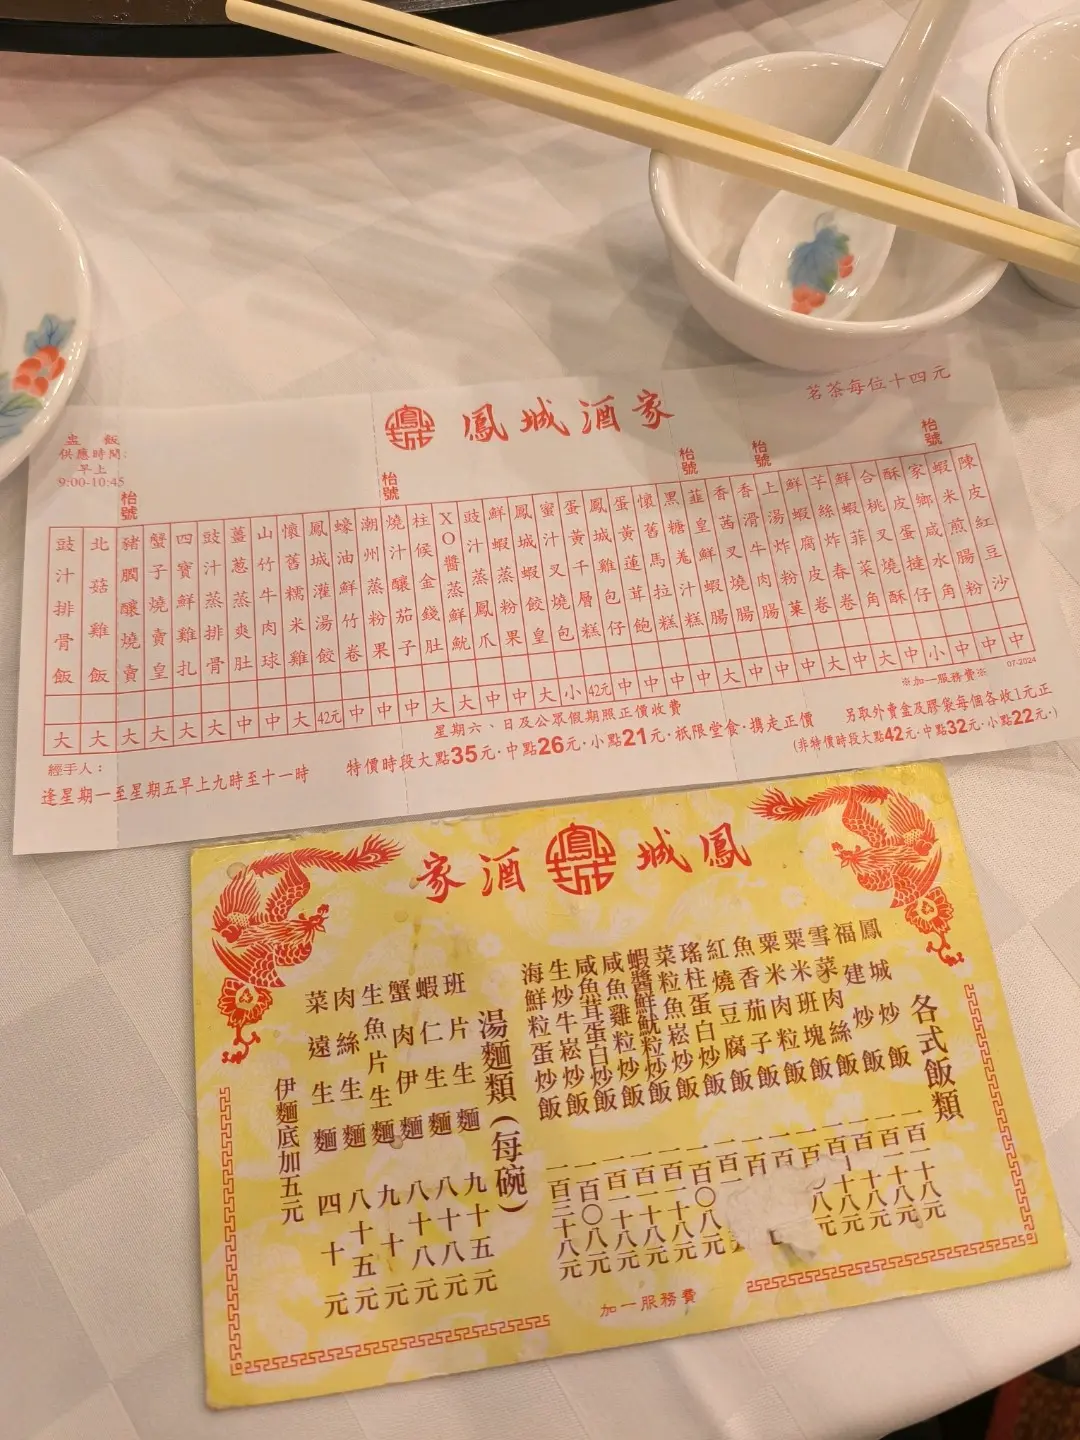 茗茶每位十四元
鳳城酒家
盅飯
供應時間:
早上
9:00-10:45
枱號
枱號
枱號
枱號
枱號
陳皮紅豆沙
蝦米煎腸粉
家鄉咸水角
酥皮蛋撻仔
合桃叉燒酥
鮮蝦菲菜角
芋絲炸春卷
鮮蝦腐皮卷
上湯炸粉菓
香滑牛肉腸
香茜叉燒腸
韮皇鮮蝦腸
黑糖羗汁糕
懷舊馬拉糕
蛋黃蓮茸飽
鳳城雞包仔
蛋黃千層糕
蜜汁叉燒包
鳳城蝦餃皇
鮮蒸粉果
豉汁蒸鳳爪
XO醬蒸鮮魷
柱侯金錢肚
燒汁釀茄子
潮州蒸粉果
蠔油鮮竹卷
鳳城灌湯餃
懷舊糯米雞
山竹牛肉球
薑葱蒸爽肚
豉汁蒸排骨
四寶鮮雞扎
蟹子燒賣皇
豬膶釀燒賣
北菇雞飯
豉汁排骨飯
大 大 大 大 大 大 中 中 大 42元 中 中 中 大 大 中 中 大 小 42元 中 中 中 中 大 中 中 中 大 中 大 中 小 中 中 中
07-2024
※加一服務費※
經手人:
星期六、日及公眾假期照正價收費
另取外賣盒及膠袋每個各收1元正
逢星期一至星期五早上九時至十一時
特價時段大點35元·中點26元·小點21元·祇限堂食·携走正價
(非特價時段大點42元·中點32元·小點22元·)
鳳城酒家
各式飯類
鳳城炒飯 一百一十八元
福建炒飯 一百一十八元
雪菜肉絲飯 一百一十八元
粟米班塊飯
粟米肉粒飯
魚香茄子飯
紅燒豆腐飯
瑤柱蛋白炒飯
菜粒魚崧炒飯 一百〇八元
蝦醬鮮魷粒炒飯 一百一十八元
咸魚雞粒炒飯 一百一十八元
咸魚茸蛋白炒飯 一百一十八元
生炒牛崧炒飯 一百〇八元
海鮮粒蛋炒飯 一百三十八元
湯麵類(每碗)
班片生麵 九十五元
蝦仁生麵 八十八元
蟹肉伊麵 八十八元
生魚片生麵 九十元
肉絲生麵 八十五元
菜遠生麵 四十元
伊麵底加五元
加一服務費